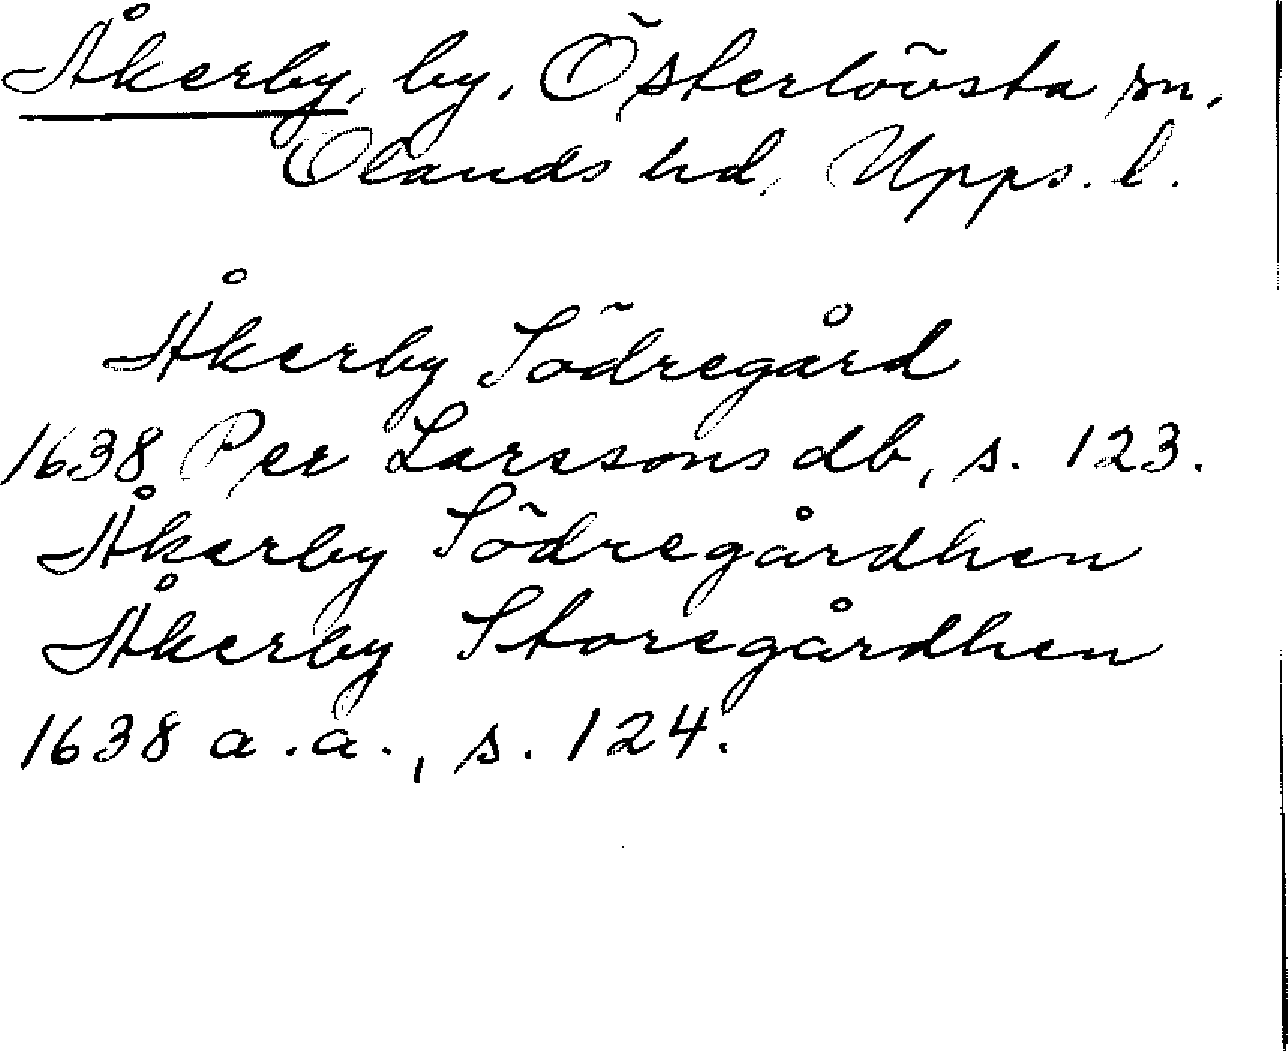 Åkerby, by, Österlövsta sn,
Olands hd, Upps. l.
Åkerby Södregård
1638 Per Larssons db, s. 123.
Åkerby Södregårdhen
Åkerby Storegårdhen
1638 a.a., s. 124.